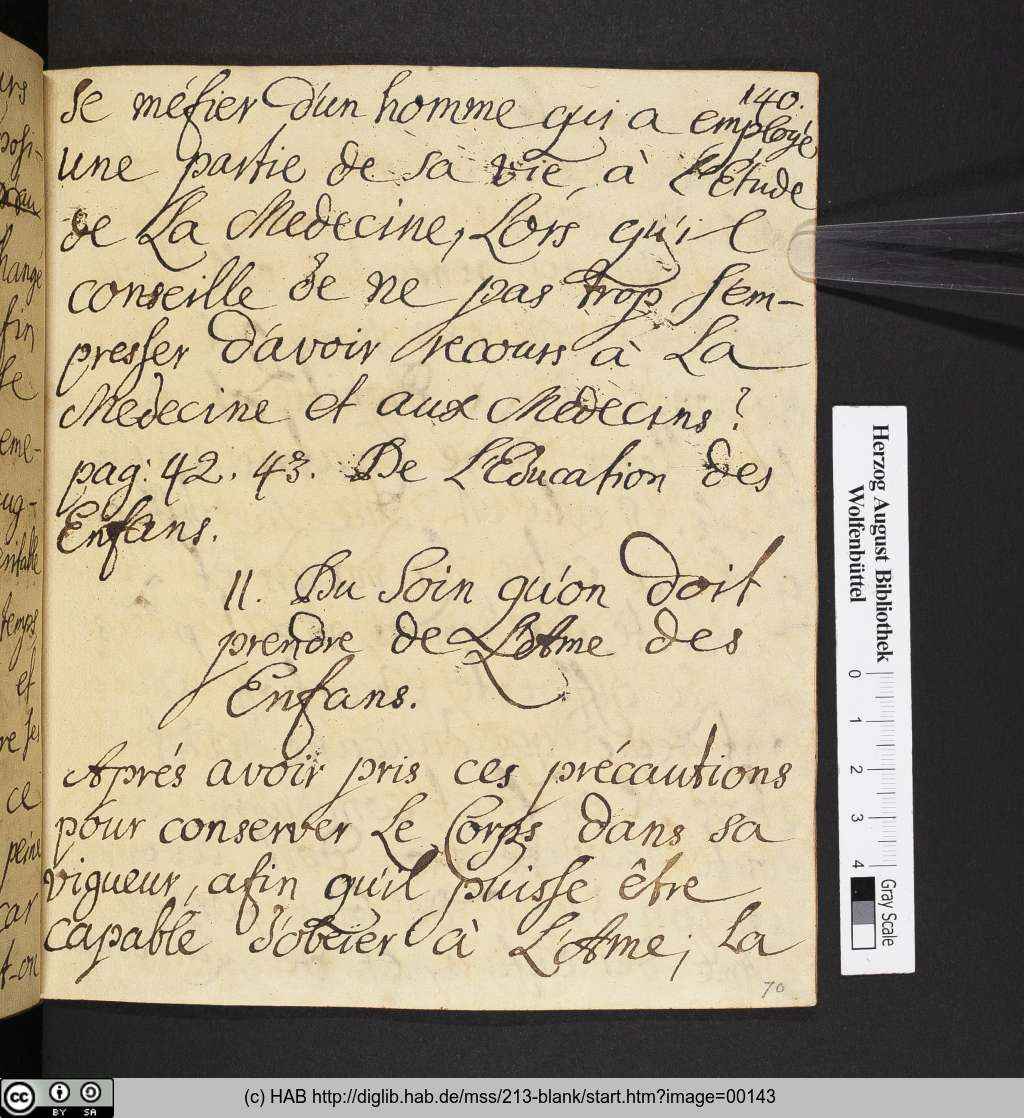 140.
se méfier d'un homme qui a employé
une partie de sa vie à L'Etude
de La Medecine, Lors qu'il
conseille de ne pas trop s'em-
presser d'avoir recours à La
Medecine et aux Medecins?
pag: 42. 43. De L'Education des
Enfans.
II. Du Soin qu'on doit
prendre de L'Ame des
Enfans.
Aprés avoir pris ces précautions
pour conserver Le Corps dans sa
vigueur, afin qu'il puisse être
capable d'obeïr à L'Ame; La
70
urs
posi-
hangé
fin
se
eme-
ug-
temps
et
re ses
ce
peine
car
t-on
Herzog August Bibliothek
Wolfenbüttel
0 1 2 3 4
Gray Scale
cc BY SA
(c) HAB http://diglib.hab.de/mss/213-blank/start.htm?image=00143